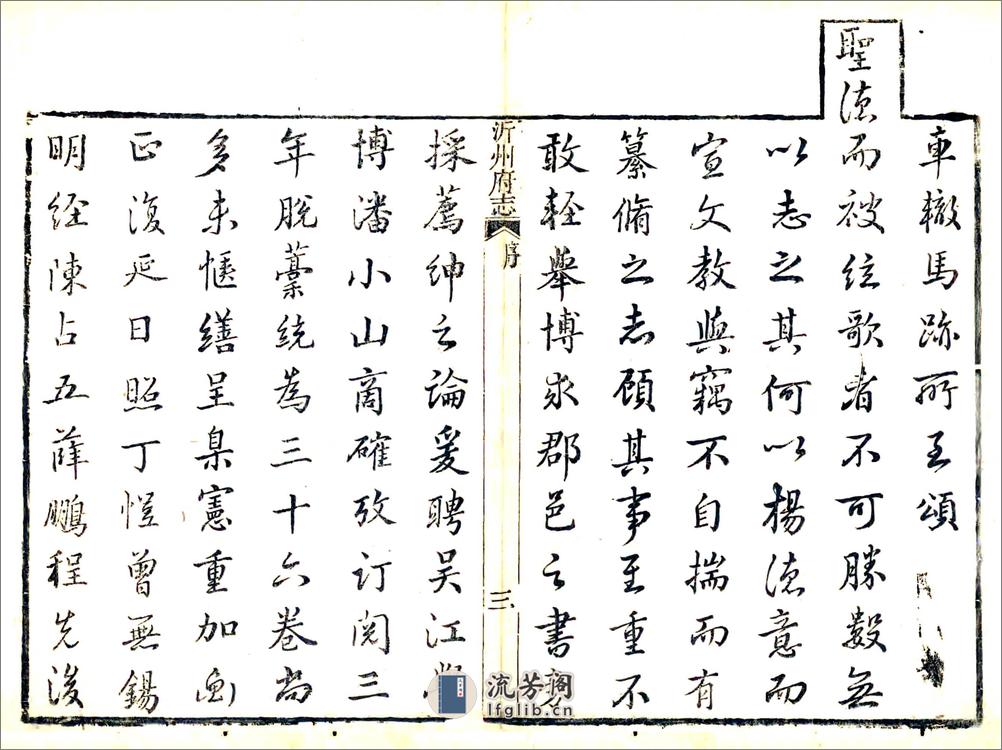 車轍馬跡所至頌
聖德而被絃歌者不可勝數無
以志之其何以楊德意而
宣文教與竊不自揣而有
纂脩之志顧其事至重不
敢輕舉博求郡邑之書
沂州府志 序 三
採薦紳之論爰聘吳江
博潘小山商確攷訂閱三
年脫藁統為三十六卷尚
多未愜繕呈臬憲重加
正復延日照丁愷曾無錫
明經陳占五薛鵬程先後
流芳閣
lfglib.cn